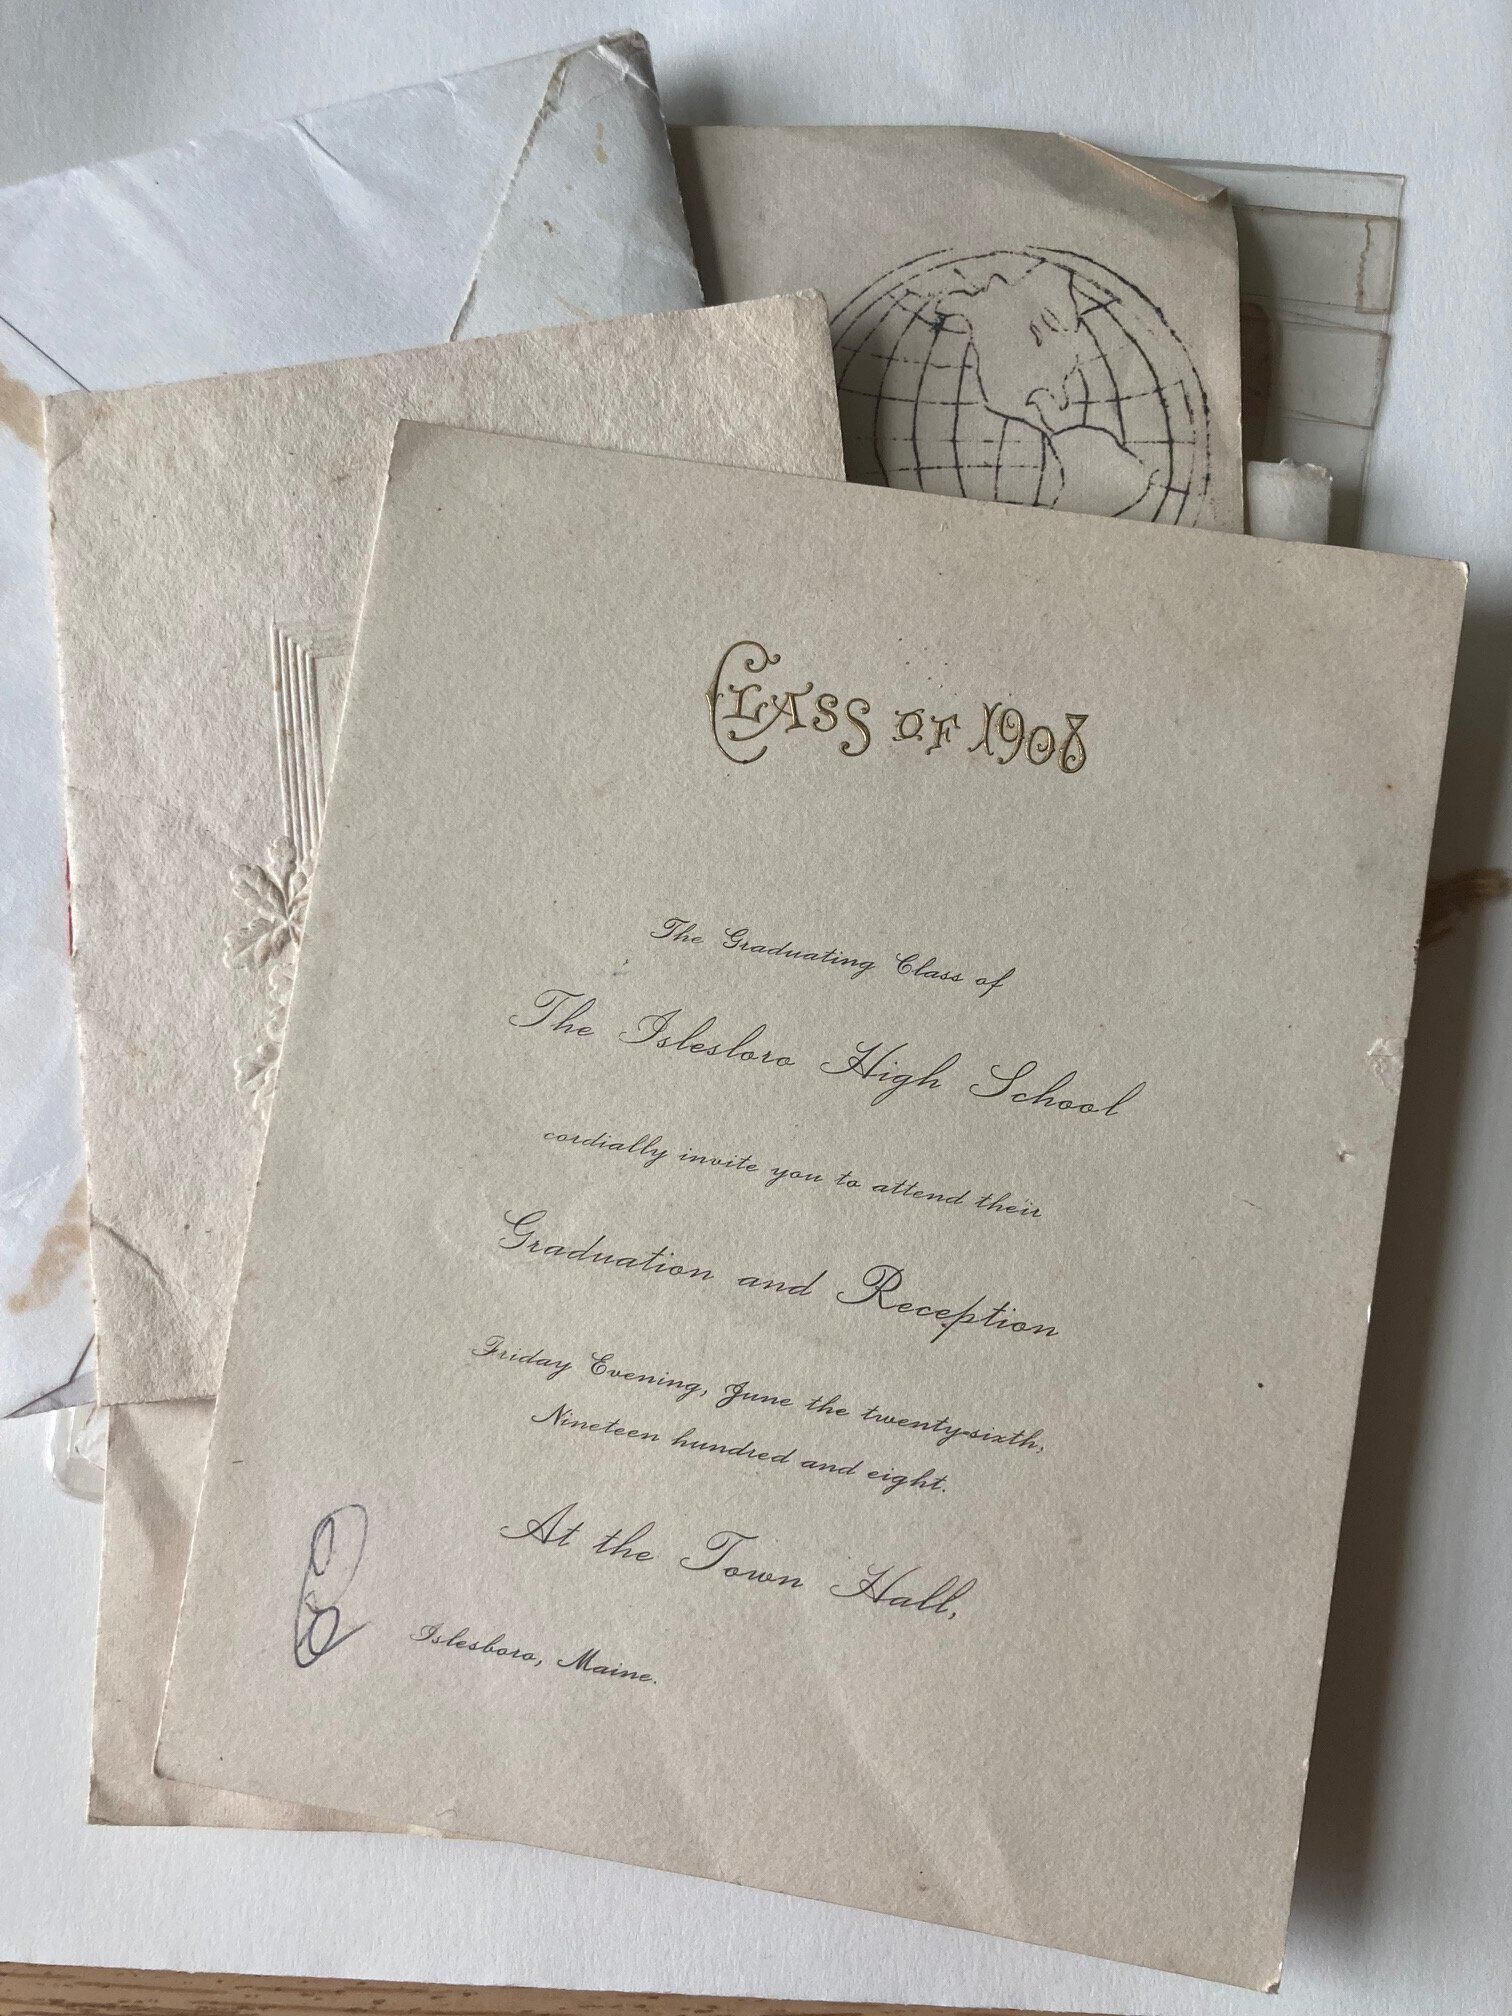 CLASS OF 1908
The Graduating Class of
The Islesboro High School
cordially invite you to attend their
Graduation and Reception
Friday Evening, June the twenty-sixth,
Nineteen hundred and eight.
At the Town Hall,
Islesboro, Maine.